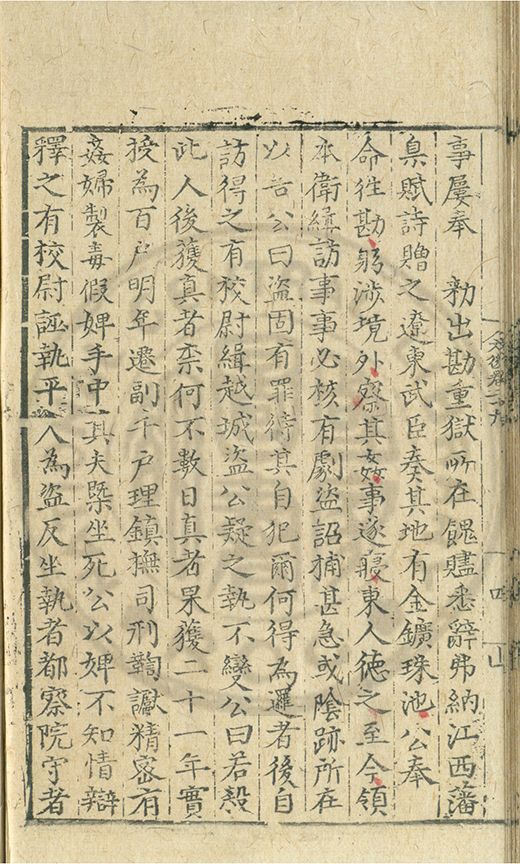 事屢奉　勑出勘重獄所在餽贐悉辭弗納江西藩
臬賦詩贈之遼東武臣奏其地有金鑛珠池公奉
命徃勘躬涉境外察其姦事遂寢東人德之至今領
本衛緝訪事事必核有劇盜詔捕甚急或陰跡所在
以告公曰盜固有罪待其自犯爾何得為邏者後自
訪得之有校尉緝越城盜公疑之執不變公曰若殺
此人後獲真者柰何不數日真者果獲二十一年實
授為百戶明年遷副千戶理鎮撫司刑鞫讞精密有
姦婦製毒假婢手中其夫槩坐死公以婢不知情辯
釋之有校尉誣執平人為盜反坐執者都察院守者